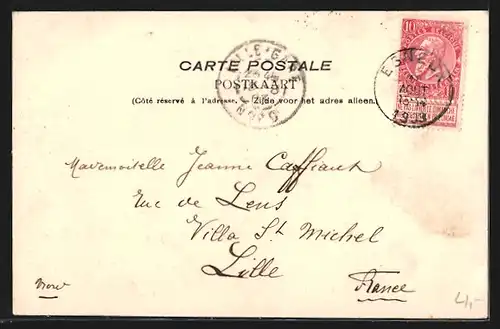 10
CARTE POSTALE
POSTKAART
(Côté réservé à l'adresse. — Zijde voor het adres alleen.
ESNEUX
AOUT
1903
Mademoiselle Jeanne Caffiaux
Rue de Lens
Villa St Michel
Lille
France
Nord
4,-